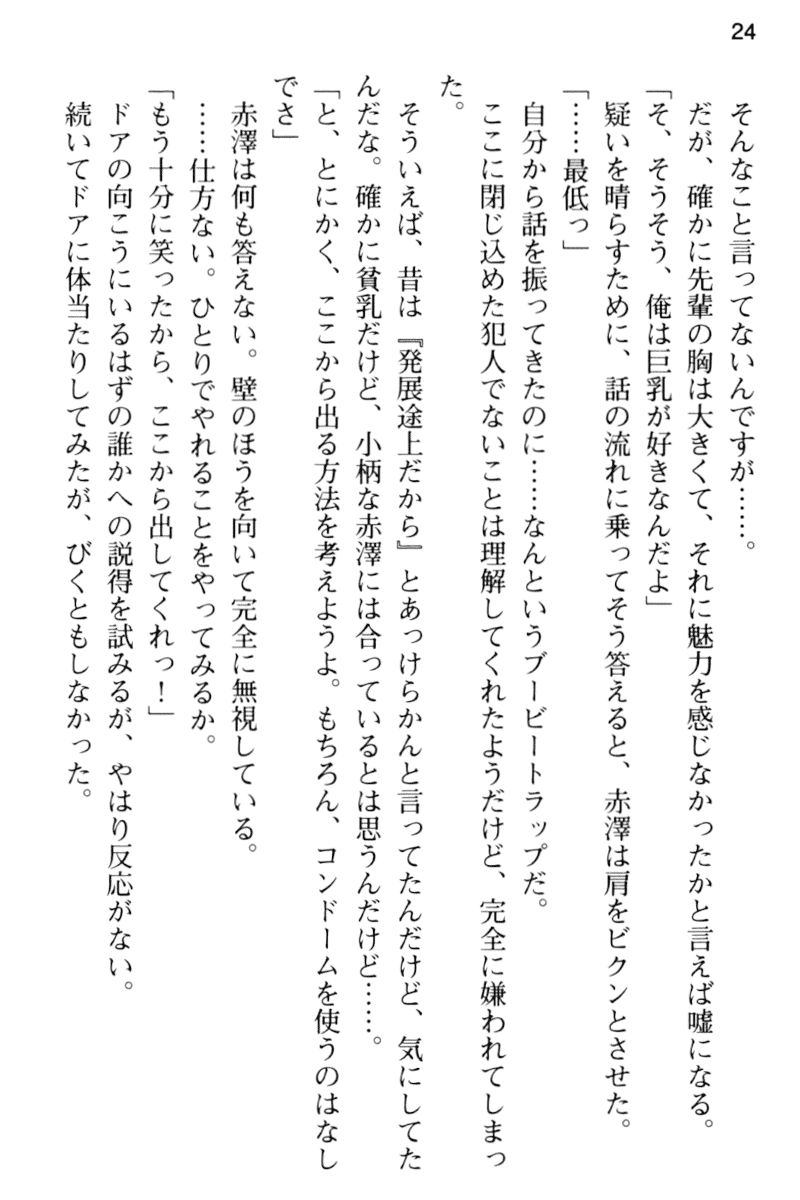 24
そんなこと言ってないんですが……。
だが、確かに先輩の胸は大きくて、それに魅力を感じなかったかと言えば嘘になる。
「そ、そうそう、俺は巨乳が好きなんだよ」
疑いを晴らすために、話の流れに乗ってそう答えると、赤澤は肩をビクンとさせた。
「……最低っ」
自分から話を振ってきたのに……なんというブービートラップだ。
ここに閉じ込めた犯人でないことは理解してくれたようだけど、完全に嫌われてしまっ
た。
そういえば、昔は『発展途上だから』とあっけらかんと言ってたんだけど、気にしてた
んだな。確かに貧乳だけど、小柄な赤澤には合っているとは思うんだけど……。
「と、とにかく、ここから出る方法を考えようよ。もちろん、コンドームを使うのはなし
でさ」
赤澤は何も答えない。壁のほうを向いて完全に無視している。
……仕方ない。ひとりでやれることをやってみるか。
「もう十分に笑ったから、ここから出してくれっ！」
ドアの向こうにいるはずの誰かへの説得を試みるが、やはり反応がない。
続いてドアに体当たりしてみたが、びくともしなかった。